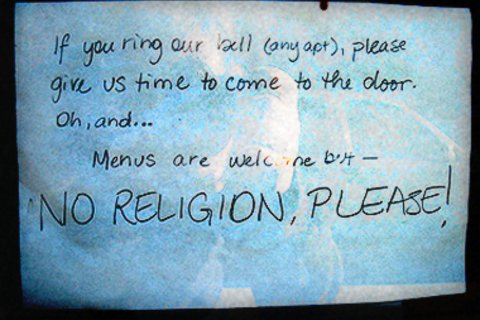 If you ring our bell (any apt), please
give us time to come to the door.
Oh, and...
Menus are welcome but —
NO RELIGION, PLEASE!